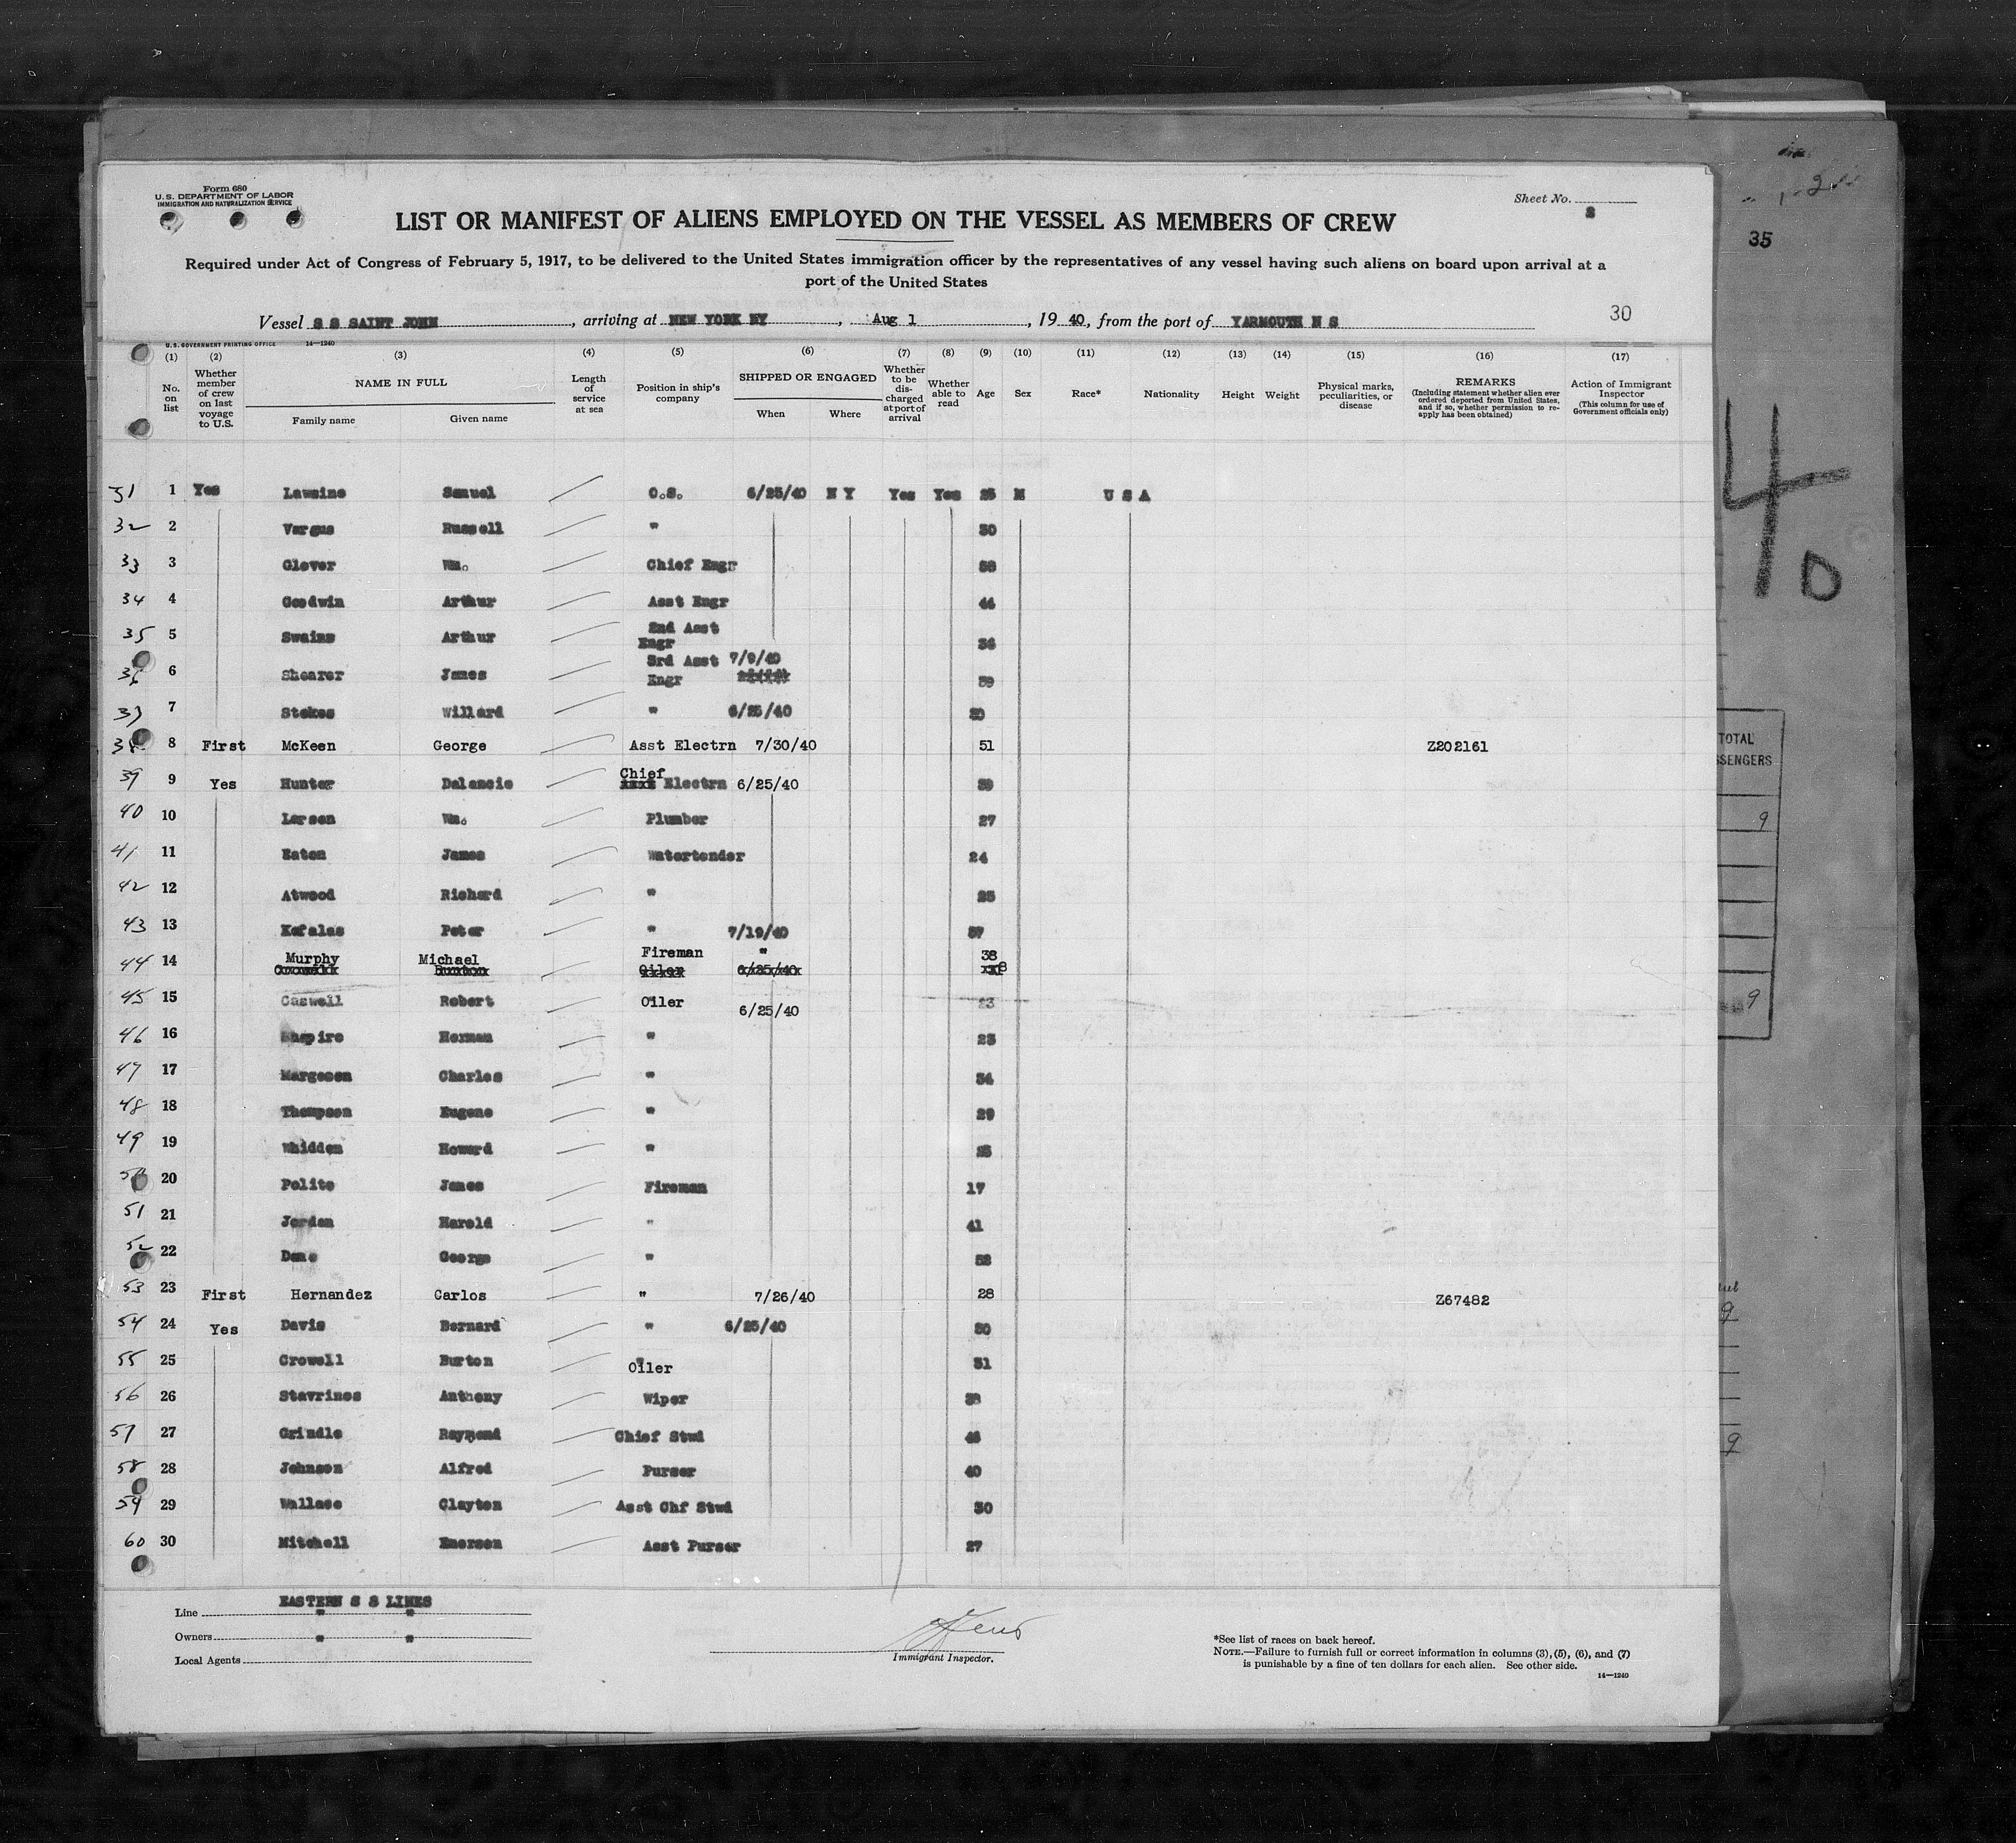 Form 680
U.S. DEPARTMENT OF LABOR
IMMIGRATION AND NATURALIZATION SERVICE
Sheet No.
35
LIST OR MANIFEST OF ALIENS EMPLOYED ON THE VESSEL AS MEMBERS OF CREW
Required under Act of Congress of February 5, 1917, to be delivered to the United States immigration officer by the representatives of any vessel having such aliens on board upon arrival at a
port of the United States
Vessel S S SAINT JOHN, arriving at NEW YORK NY, Aug 1, 19 40, from the port of YARMOUTH N S 30
U.S. GOVERNMENT PRINTING OFFICE 14—1240
(1) No. on list
(2) Whether member of crew on last voyage to U.S.
(3) NAME IN FULL Family name Given name
(4) Length of service at sea
(5) Position in ship's company
(6) SHIPPED OR ENGAGED When Where
(7) Whether to be discharged at port of arrival
(8) Whether able to read
(9) Age
(10) Sex
(11) Race*
(12) Nationality
(13) Height
(14) Weight
(15) Physical marks, peculiarities, or disease
(16) REMARKS (Including statement whether alien ever ordered deported from United States, and if so, whether permission to reapply has been obtained)
(17) Action of Immigrant Inspector (This column for use of Government officials only)
31 1 Yes Lawsine Samuel O.S. 6/25/40 N Y Yes Yes 25 M U S A
32 2 Vargus Russell " 30
33 3 Glover Wm. Chief Engr
34 4 Goodwin Arthur Asst Engr 44
35 5 Swains Arthur 2nd Asst Engr
36 6 Shearer James 3rd Asst Engr 7/9/40
37 7 Stokes Willard " 6/25/40
38 8 First McKeen George Asst Electrn 7/30/40 51 Z202161
39 9 Yes Hunter Delancie Chief Electrn 6/25/40
40 10 Larsen Wm. Plumber 27
41 11 Eaton James Watertender 24
42 12 Atwood Richard " 25
43 13 Kefalas Peter " 7/19/40 37
44 14 Murphy Michael Fireman " 38
45 15 Caswell Robert Oiler 6/25/40 23
46 16 Shapiro Herman " 23
47 17 Margeson Charles " 34
48 18 Thompson Eugene " 29
49 19 Whidden Howard "
50 20 Polito James Fireman 17
51 21 Jordan Harold " 41
52 22 Dene George "
53 23 First Hernandez Carlos " 7/26/40 28 Z67482
54 24 Yes Davis Bernard " 6/25/40 30
55 25 Crowell Burton Oiler 31
56 26 Stavrinos Anthony Wiper 38
57 27 Grindle Raymond Chief Stwd
58 28 Johnson Alfred Purser 40
59 29 Wallace Clayton Asst Chf Stwd 30
60 30 Mitchell Emerson Asst Purser 27
Line EASTERN S S LINES
Owners " "
Local Agents " "
Immigrant Inspector.
*See list of races on back hereof.
NOTE.—Failure to furnish full or correct information in columns (3), (5), (6), and (7)
is punishable by a fine of ten dollars for each alien. See other side.
14—1240
40
TOTAL
SSENGERS
9
9
9
9